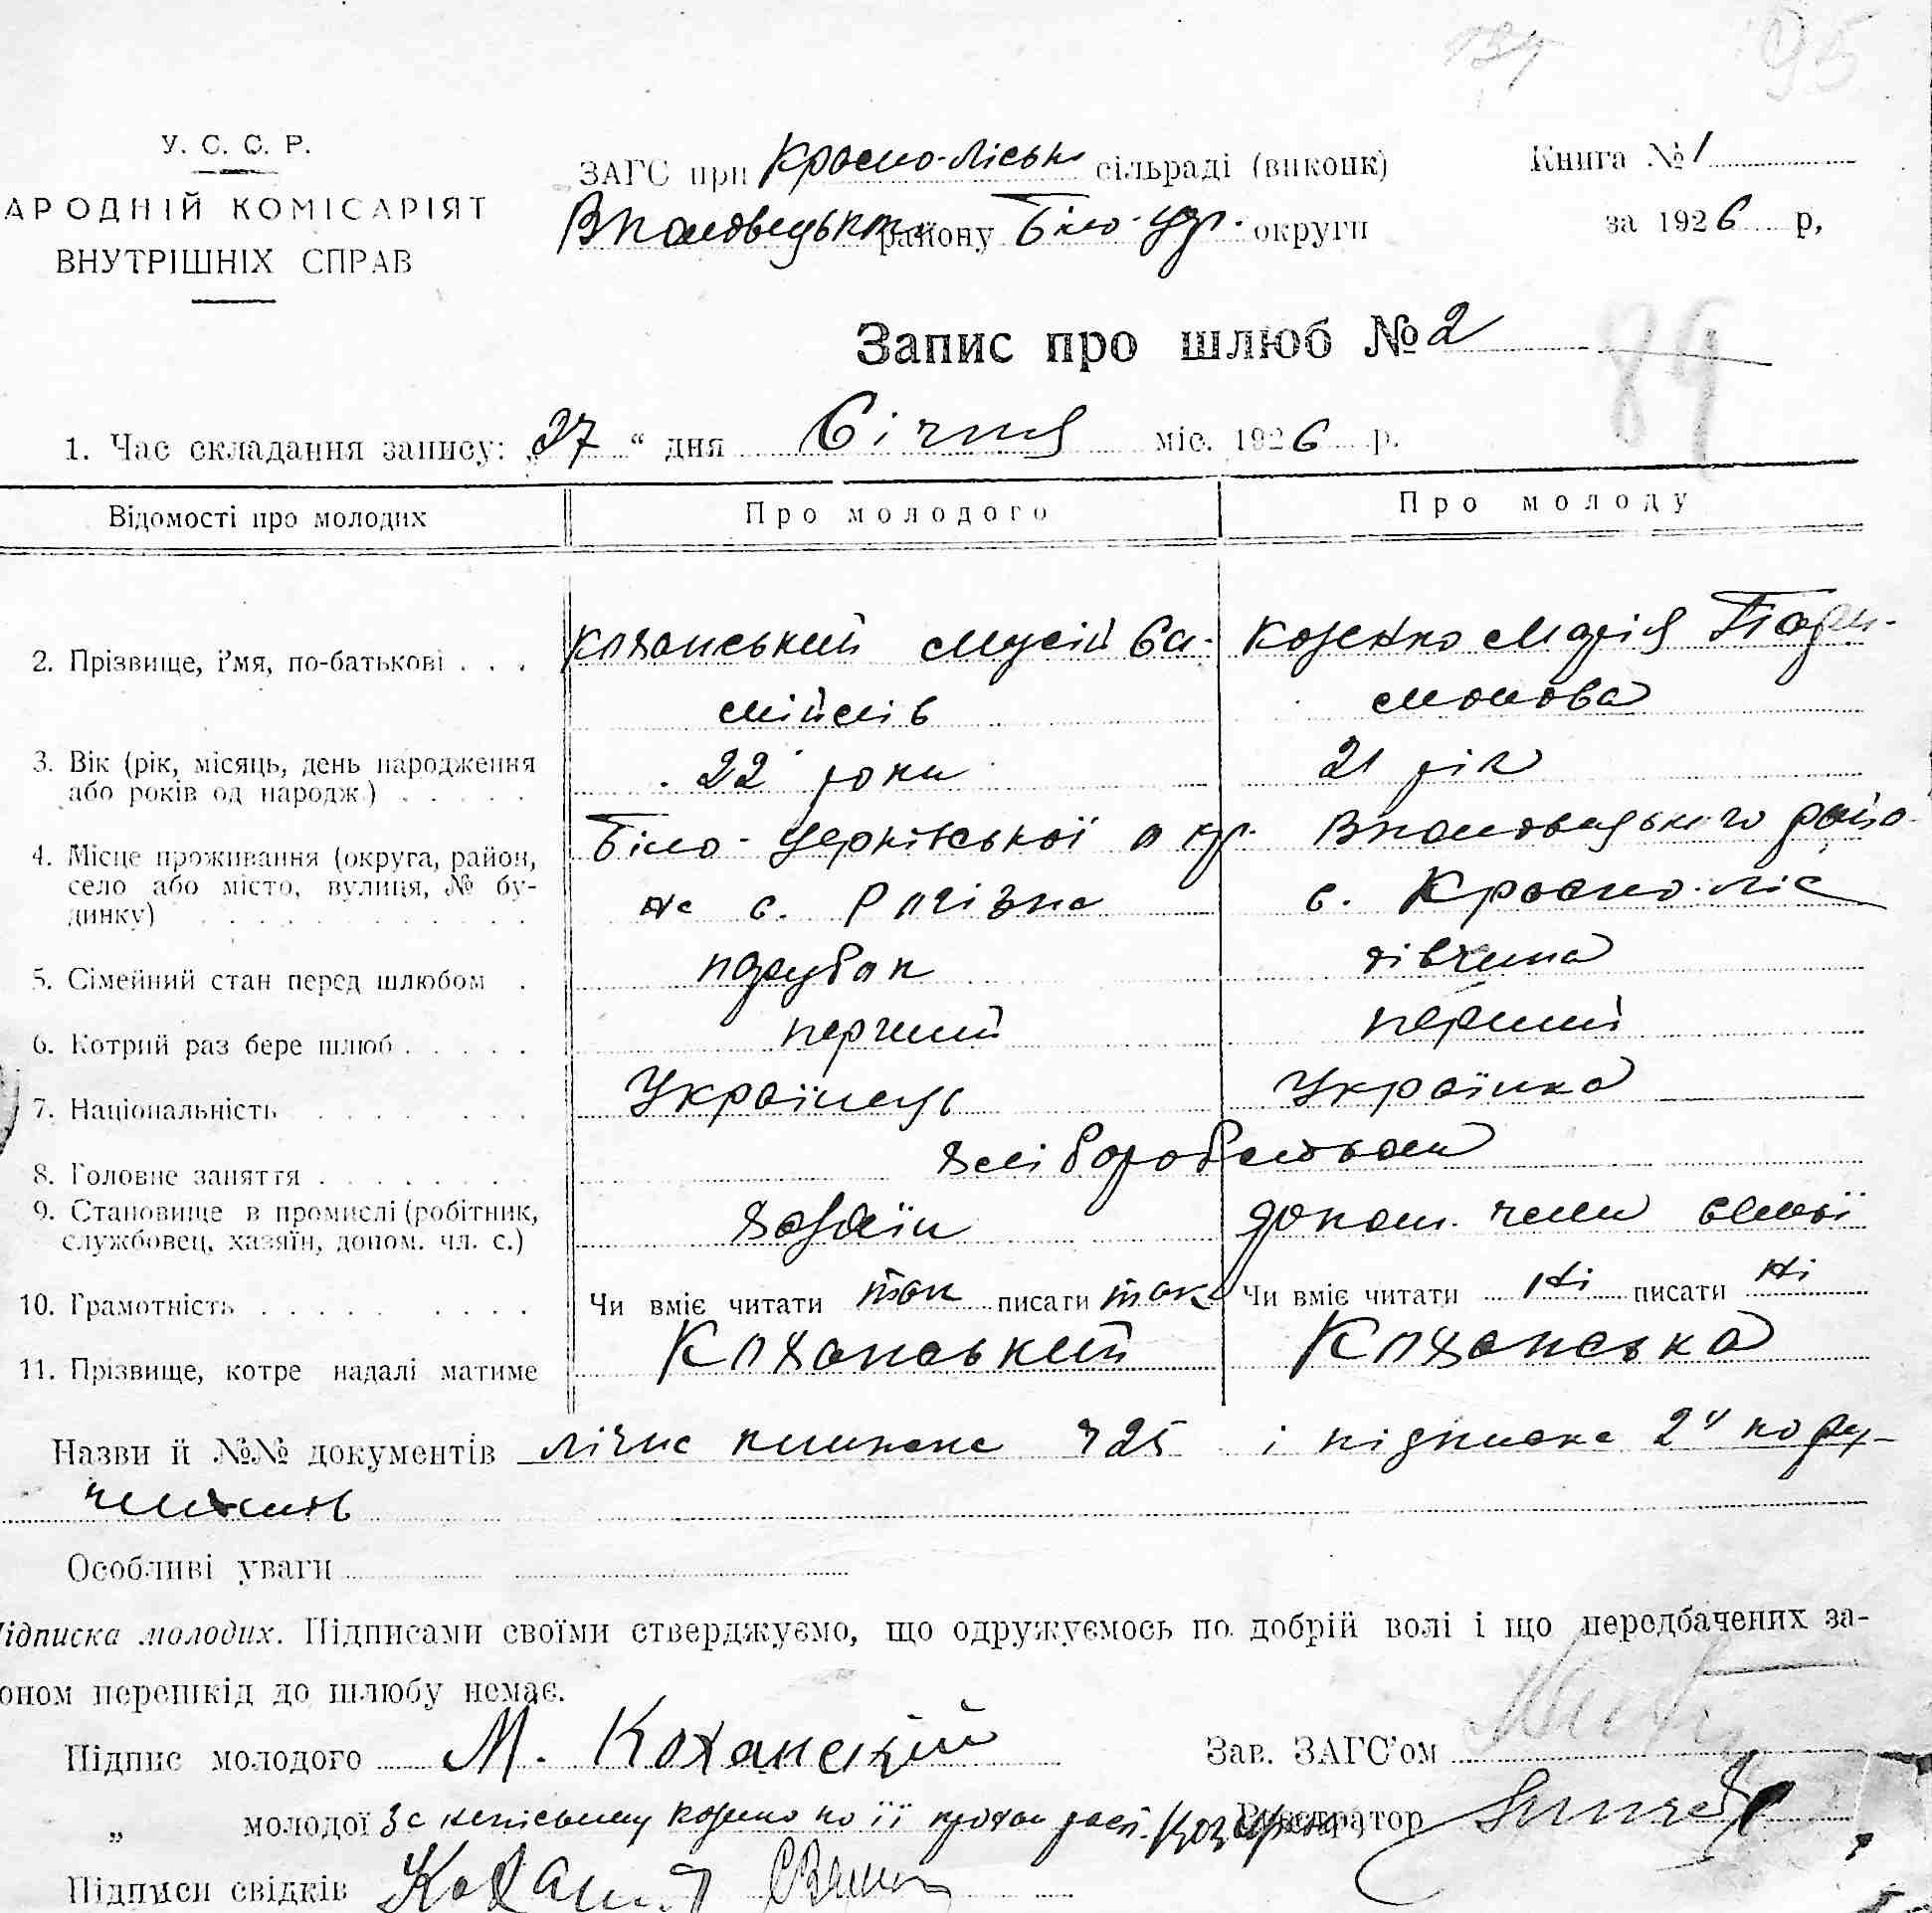 134 95
У. С. С. Р.
АРОДНІЙ КОМІСАРІЯТ
ВНУТРІШНІХ СПРАВ
ЗАГС при Красно-ліськ сільраді (виконк)
района Біло-Цер. округи
Книга № 1
за 1926 р,
Запис про шлюб № 2
89
1. Час складання запису: „27 “ дня Січня міс. 1926 р.
Відомості про молодих Про молодого Про молоду
2. Прізвище, і'мя, по-батькові . . . Коханський Мусій Са- Козенко Марія Пари-
мійлів монова
3. Вік (рік, місяць, день народження 22 роки 21 рік
або років од народж.) . . . . .
4. Місце проживання (округа, район, Біло-Церківської окр. району
село або місто, вулиця, № бу- с. Рогізна с. Красно-ліс
динку) . . . . . . . . . . .
5. Сімейний стан перед шлюбом . парубок дівчина
6. Котрий раз бере шлюб . . . . . перший перший
7. Національність . . . . . . . Українець Українка
8. Головне заняття . . . . . . . . хліборобством
9. Становище в промислі (робітник, хазяїн допом. член сімьї
службовец, хазяїн, допом. чл. с.)
10. Грамотність . . . . . . . . . Чи вміє читати так писати так Чи вміє читати ні писати ні
11. Прізвище, котре надалі матиме Коханський Коханська
Назви й №№ документів лічна книжка ч 25 і підписка 2х пору-
чителів
Особливі уваги
ідписка молодих. Підписами своїми стверджуємо, що одружуємось по добрій волі і що передбачених за-
оном перешкід до шлюбу немає.
Підпис молодого М. Коханский Зав. ЗАГС'ом
„ молодої За неписьмену по її Реєстратор
Підписи свідків